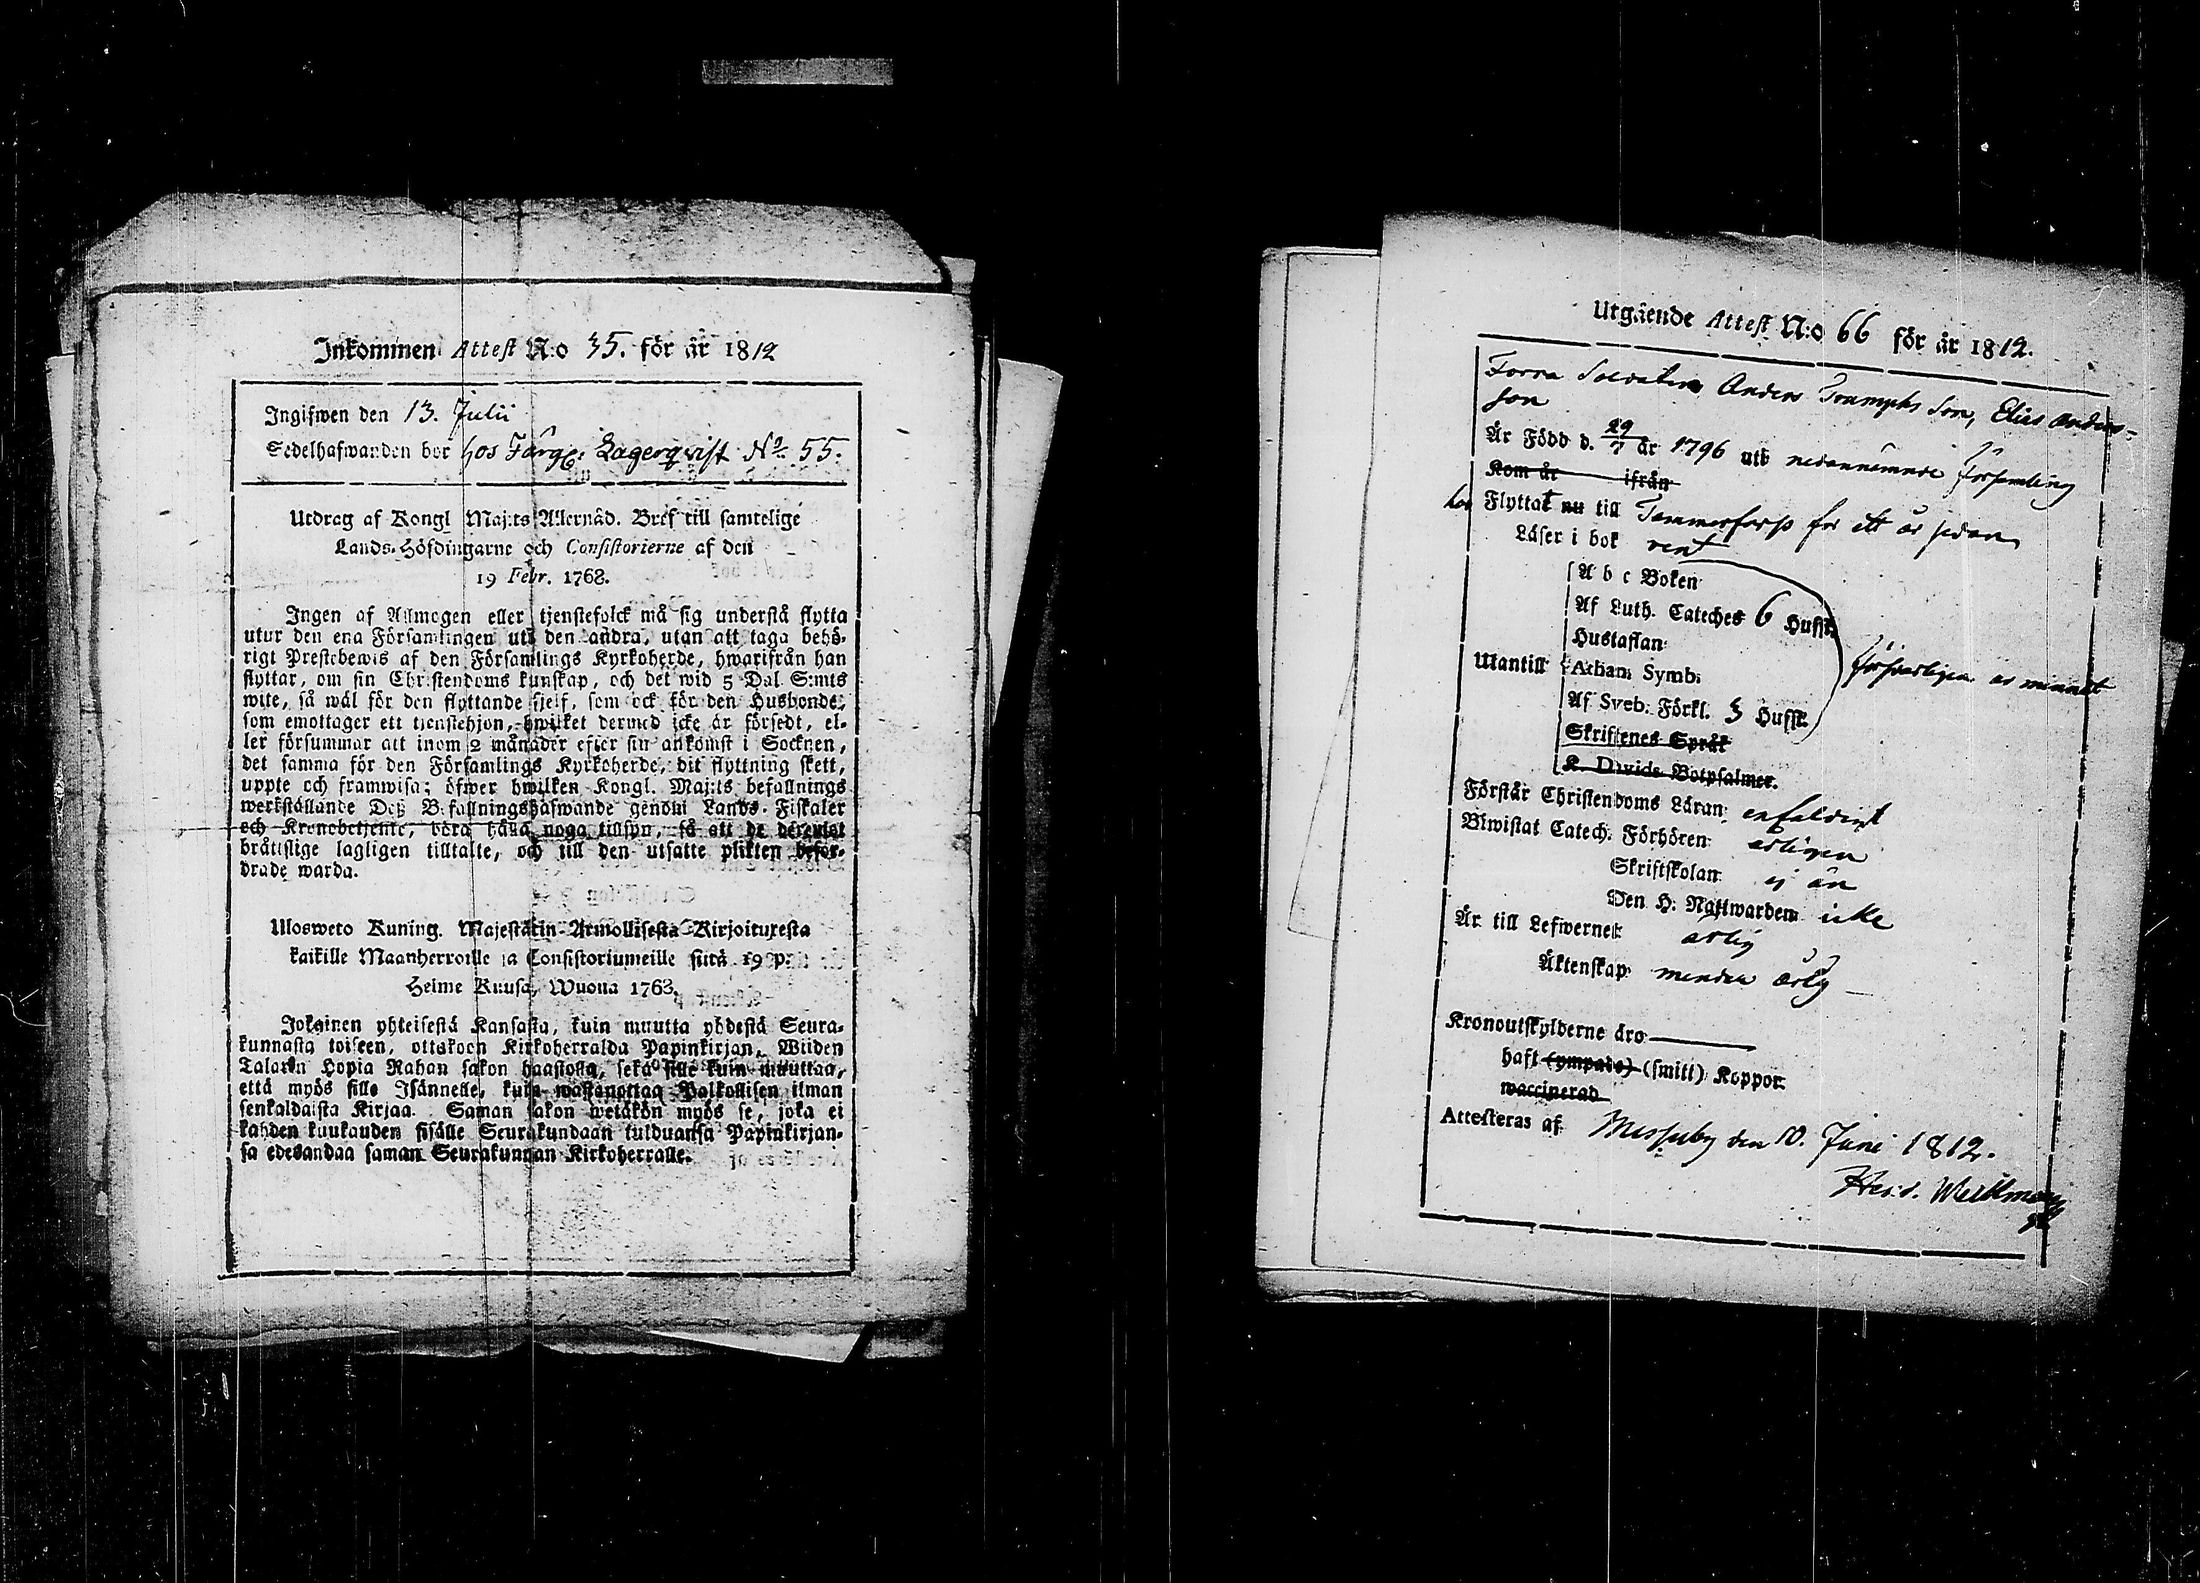 Inkommen Attest N:o 35. för år 1812
Ingifwen den 13. Julii
Sedelhafwanden bor hos Färg: Lagerqvist No. 55.
Utdrag af Kongl Maj:ts Allernåd. Bref till samtelige
Lands-Höfdingarne och Consistorierne af den
19 Febr. 1768.
Ingen af Allmogen eller tjenstefolck må sig understå flytta
utur den ena Församlingen uti den andra, utan att taga behö-
rigt Prestebewis af den Församlings Kyrkoherde, hwarifrån han
flyttar, om sin Christendoms kunskap, och det wid 5 Dal S:mts
wite, så wäl för den flyttande sjelf, som ock för den Husbonde,
som emottager ett tjenstehjon, hwilket dermed icke är försedt, el-
ler försummar att inom 2 månader efter sin ankomst i Socknen,
det samma för den Församlings Kyrkoherde, dit flyttning skett,
uppte och framwisa; öfwer hwilken Kongl. Maj:ts befallnings
werkställande Deß Befallningshafwande genom Lands-Fiskaler
och Kronobetjente, böra hålla noga tillsyn, så att de deremot
bråttslige lagligen tilltalte, och till den utsatte plikten befor-
drade warda.
Ulosweto Kuning. Majestätin Armollisesta Kirjoituxesta
kaikille Maanherroille ja Consistoriumeille siitä 19 p.
Helme Kuusa, Wuona 1768.
Jokainen yhteisestä Kansasta, kuin muutta yhdestä Seura-
kunnasta toiseen, ottakoon Kirkoherralda Papinkirjan, Wiiden
Talarin Hopia Rahan sakon haastolla, sekä sille kuin muuttaa,
että myös sille Isännelle, kuin wastanottaa Palkollisen ilman
senkaldaista Kirjaa. Saman sakon wetäkön myös se, joka ei
kahden kuukauden sisälle Seurakundaan tulduansa Papinkirjan-
sa edesandaa saman Seurakunnan Kirkoherralle.
Utgående Attest N:o 66 för år 1812.
Forra Soldaten Anders Trumphs Son, Elias Anders-
son
Är Född d. 29/7 år 1796 uti nedannämnde församling
Kom år ifrån
har Flyttat nu till Tammerfors för ett år sedan
Läser i bok rent
A b c Boken
Af Luth. Cateches 6 Hufst.
Hustaflan
Utantill Athan. Symb.
försvarligen ur minnet
Af Sveb. Förkl. 3 Hufst.
Skriftenes Språk
K. Davids Botpsalmer.
Förstår Christendoms Läran enfaldigt
Biwistat Catech. Förhören årligen
Skriftskolan ej än
Den H. Nattwarden icke
Är till Lefwernet ärlig
Äktenskap
Kronoutskylderne äro
haft (ympade) (smitt) Koppor.
waccinerad
Attesteras af Messuby den 10. Juni 1812.